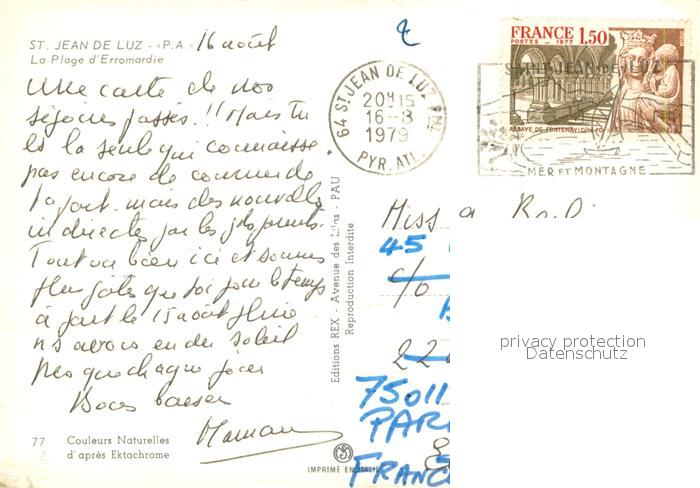 ST. JEAN DE LUZ - «P.A.» 16 août
La Plage d'Erromardie
Une carte de nos
séjours passés !! Mais tu
es la seule qui connaisse
pas encore de
mais des nouvelles
indirectes par les
Tout va bien ici et sommes
plus gâtés que toi pour le temps
à part le 15 août
ns avons eu du soleil
presque chaque jour
Bons baisers
Maman
77 Couleurs Naturelles
d'après Ektachrome
Editions REX - Avenue des - PAU
Reproduction Interdite
IMPRIMÉ EN ITALIE
64 ST. JEAN DE LUZ PPAL
20H15
16-8
1979
PYR. ATL.
FRANCE 1,50
POSTES 1977
ABBAYE DE FONTENAY (Côte-d'Or)
SAINT JEAN DE LUZ
MER ET MONTAGNE
Miss a R
45
c/o
22
75011
PAR
FRANC
privacy protection
Datenschutz